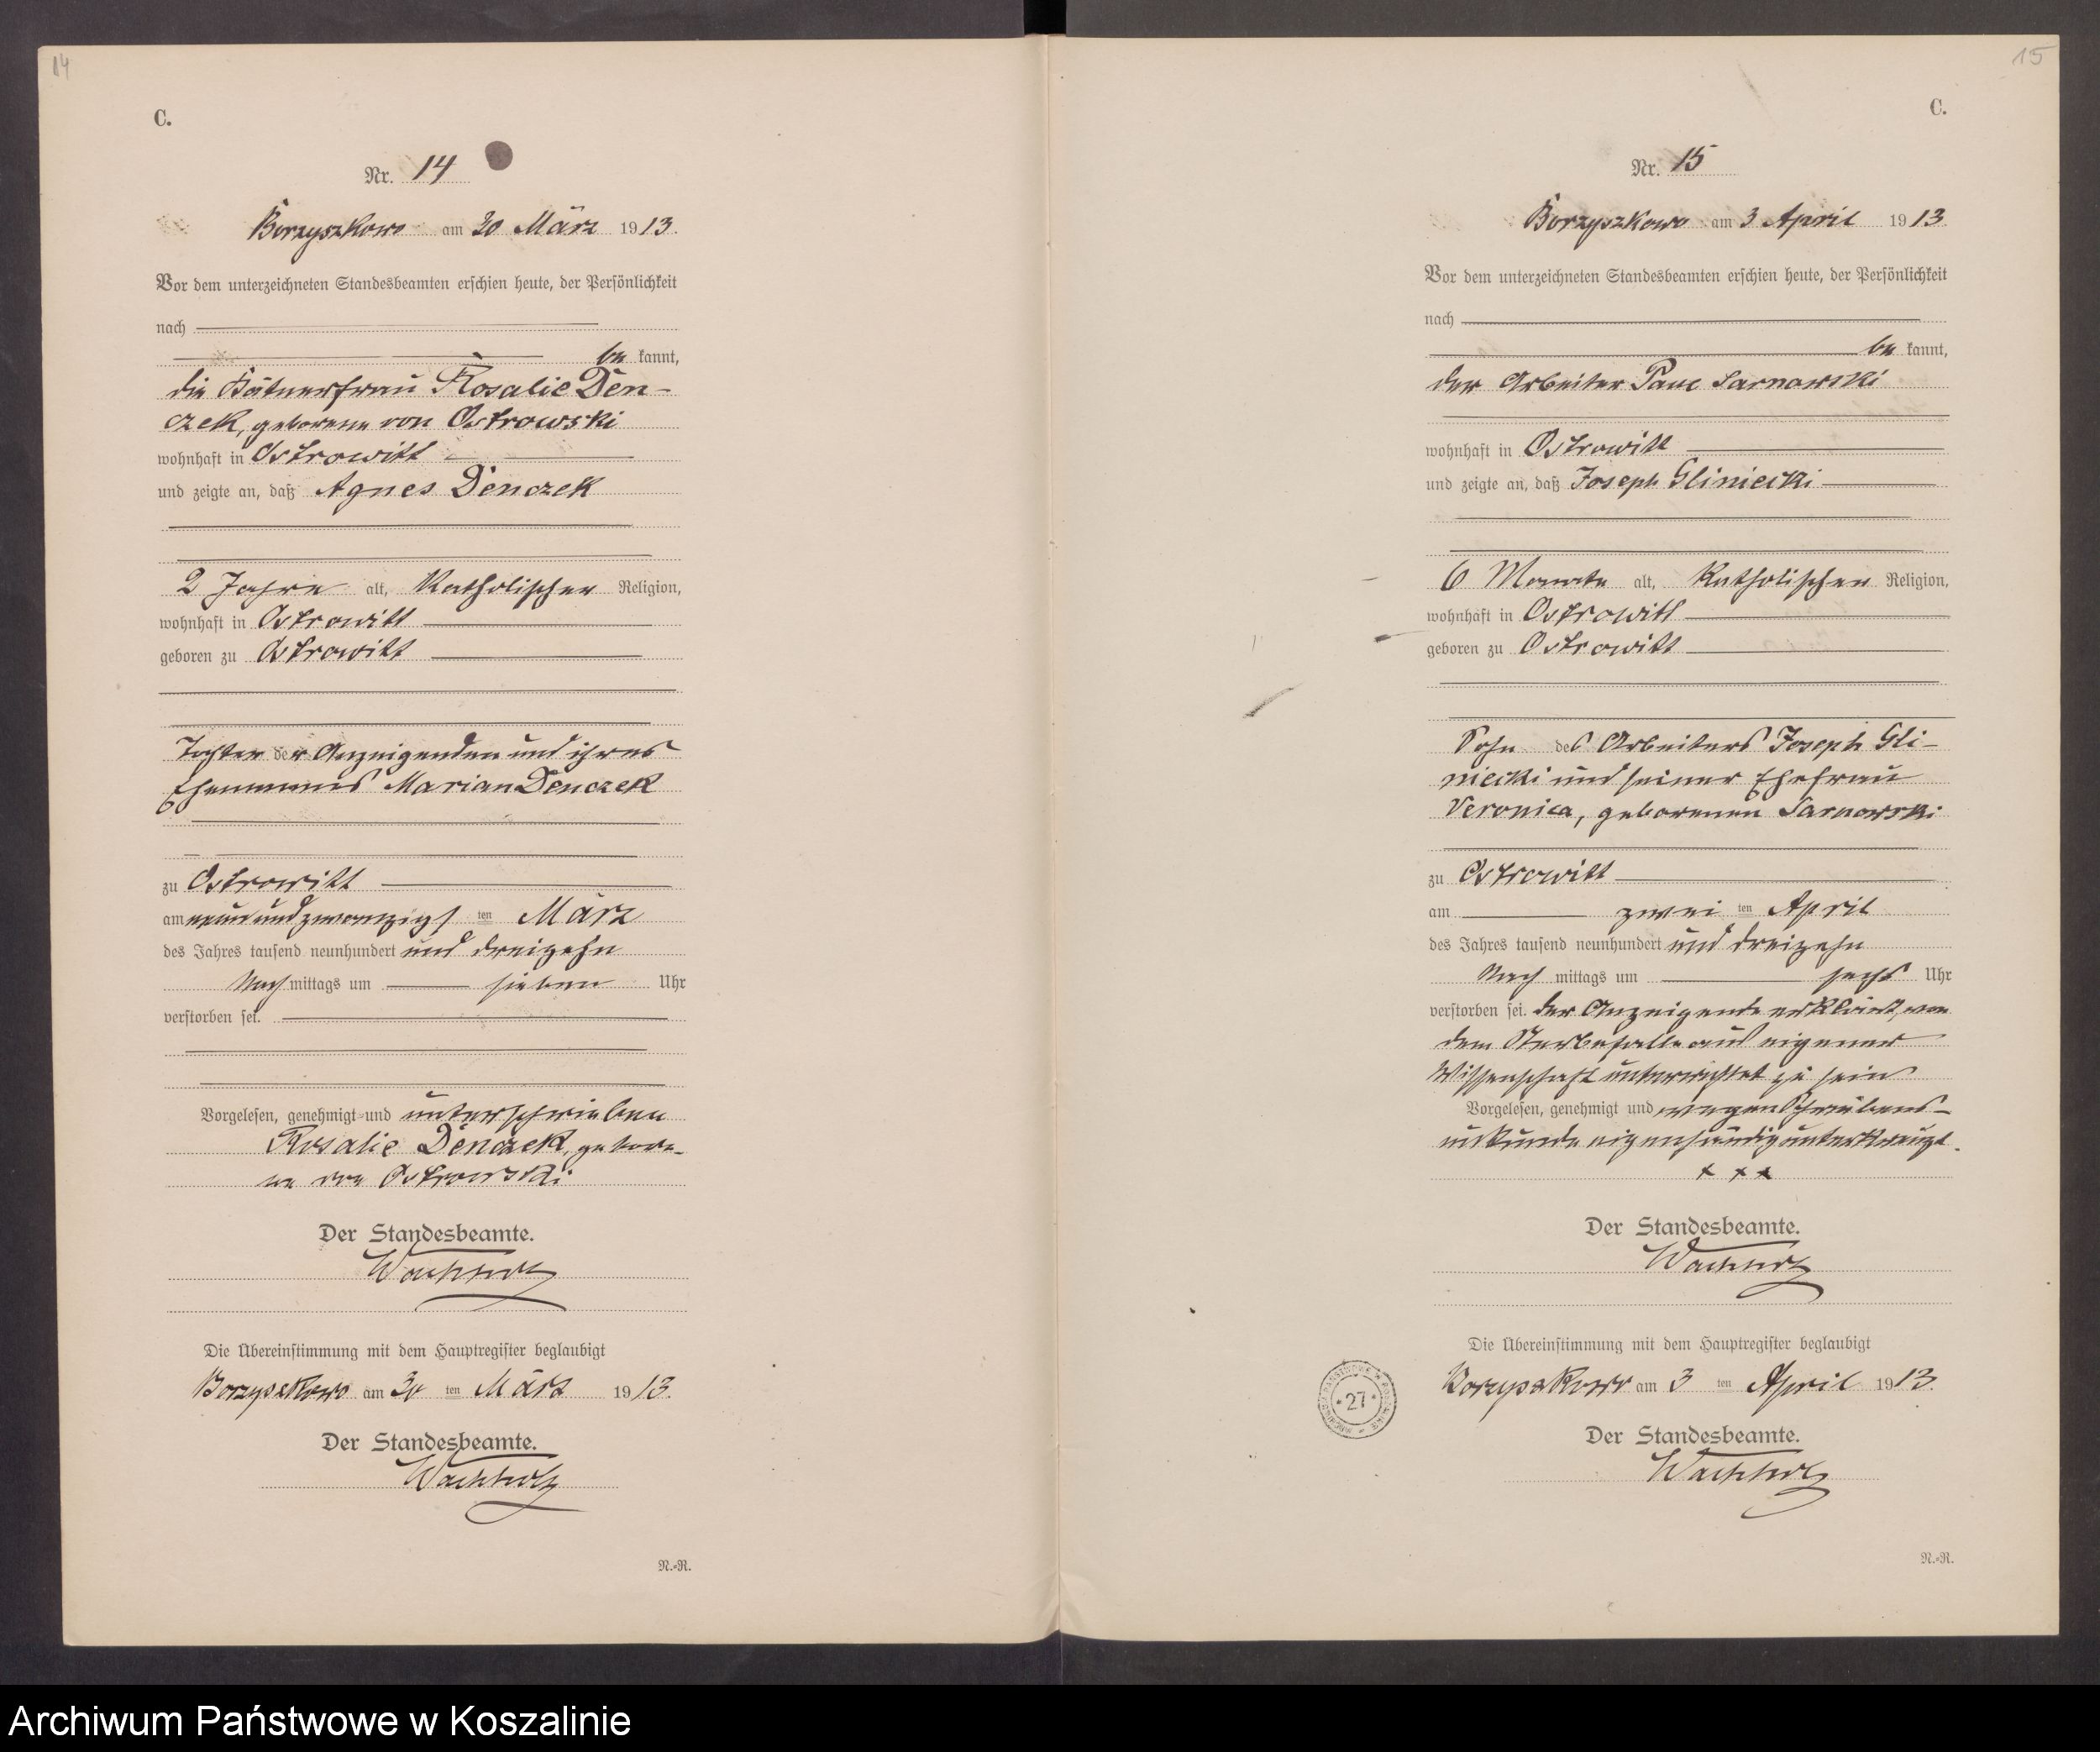 14
C.
Nr. 14
Borzyszkowo am 30 März 1913.
Vor dem unterzeichneten Standesbeamten erschien heute, der Persönlichkeit
nach
be kannt,
die Kätnerfrau Rosalie Den-
czek, geborene von Ostrowski
wohnhaft in Ostrowitt
und zeigte an, daß Agnes Denczek
2 Jahre alt, katholischer Religion,
wohnhaft in Ostrowitt
geboren zu Ostrowitt
Tochter der Anzeigenden und ihres
Ehemannes Marian Denczek
zu Ostrowitt
am neunundzwanzigsten März
des Jahres tausend neunhundert und dreizehn
Nachmittags um sieben Uhr
verstorben sei.
Vorgelesen, genehmigt und unterschrieben
Rosalie Denczek, gebore-
ne von Ostrowski
Der Standesbeamte.
Wachholz
Die Übereinstimmung mit dem Hauptregister beglaubigt
Borzyszkowo am 30 ten März 1913.
Der Standesbeamte.
Wachholz
N.-R.
15
C.
Nr. 15
Borzyszkowo am 3 April 1913.
Vor dem unterzeichneten Standesbeamten erschien heute, der Persönlichkeit
nach
be kannt,
der Arbeiter Paul Sarnowski
wohnhaft in Ostrowitt
und zeigte an, daß Joseph Gliniecki
6 Monate alt, katholischer Religion,
wohnhaft in Ostrowitt
geboren zu Ostrowitt
Sohn des Arbeiters Joseph Gli-
niecki und seiner Ehefrau
Veronica, geborenen Sarnowski
zu Ostrowitt
am zwei ten April
des Jahres tausend neunhundert und dreizehn
Nach mittags um sechs Uhr
verstorben sei. Der Anzeigende erklärt, von
dem Sterbefalle aus eigener
Wissenschaft unterrichtet zu sein
Vorgelesen, genehmigt und wegen Schreibens-
unkunde eigenhändig unterkreuzt.
+ + +
Der Standesbeamte.
Wachholz
Die Übereinstimmung mit dem Hauptregister beglaubigt
Borzyszkowo am 3 ten April 1913.
Der Standesbeamte.
Wachholz
* 27 *
N.-R.
Archiwum Państwowe w Koszalinie